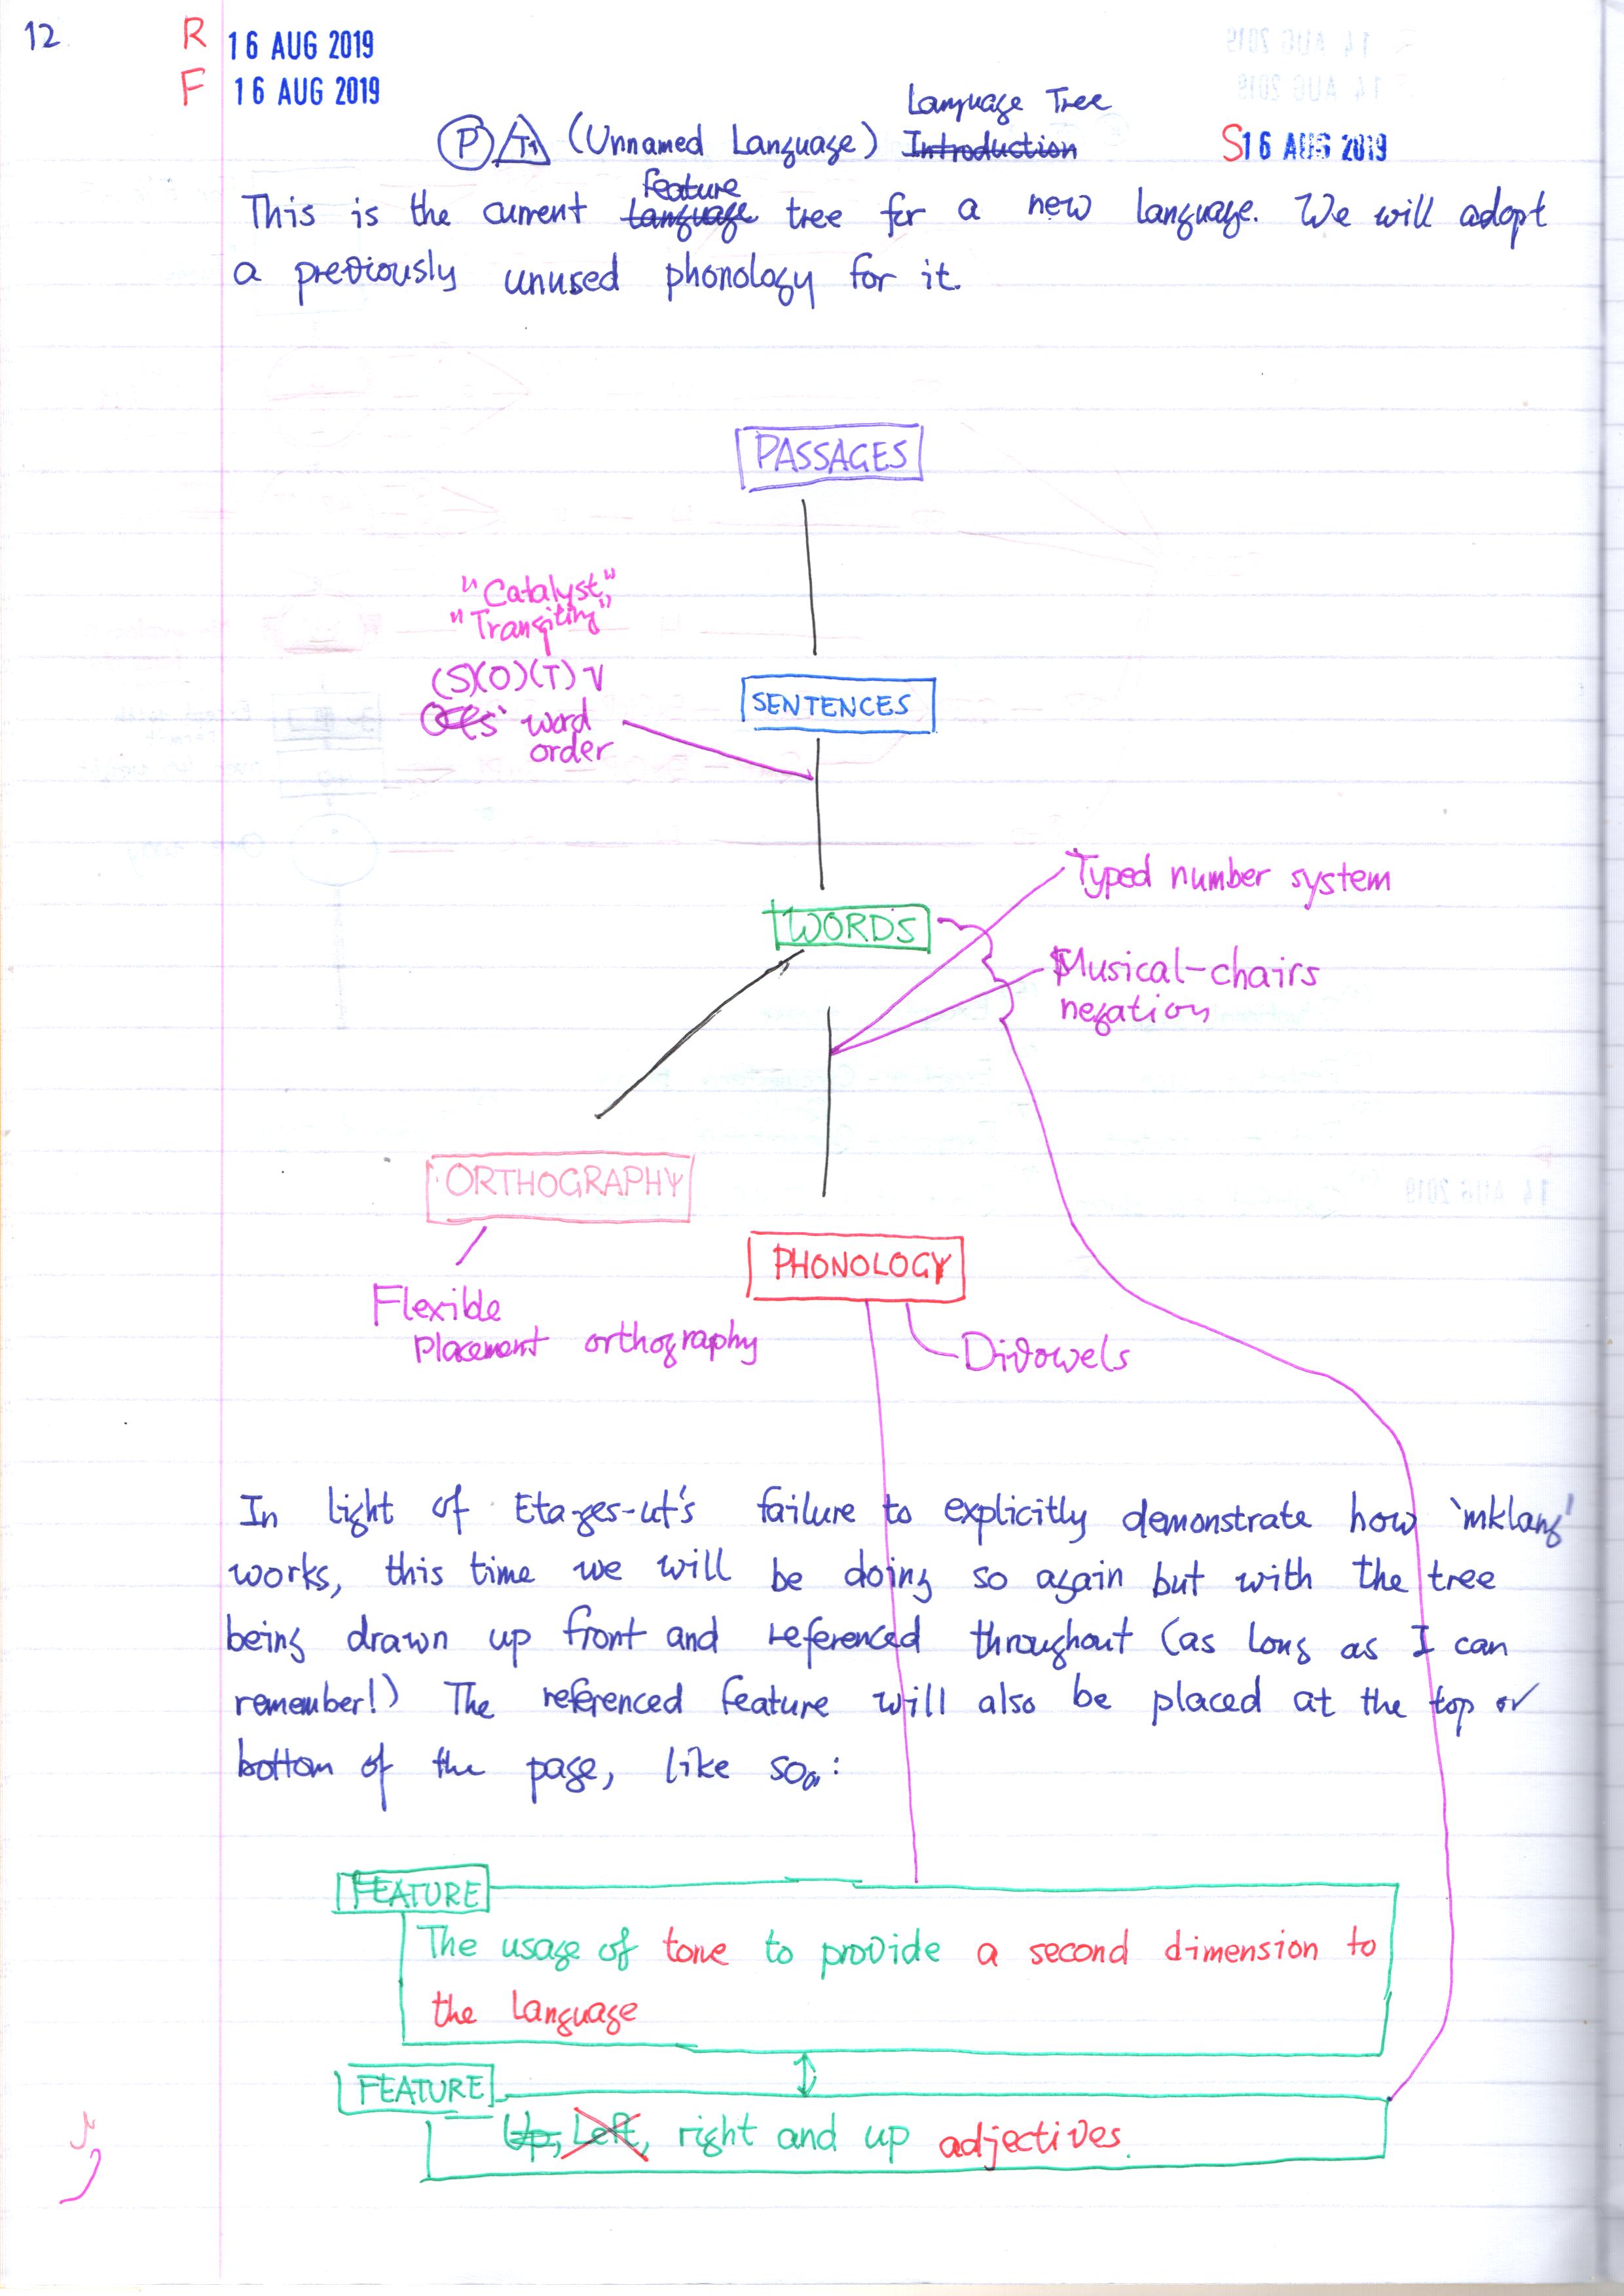 12
R 16 AUG 2019
F 16 AUG 2019
Language Tree
P (Unnamed Language) Introduction
S 16 AUG 2019
feature
This is the current language tree for a new language. We will adopt
a previously unused phonology for it.
PASSAGES
"Catalyst,"
"Transiting"
(S)(O)(T)V
word
order
SENTENCES
Typed number system
WORDS
Musical-chairs
negation
ORTHOGRAPHY
PHONOLOGY
Flexible
placement orthography
Divowels
In light of Eta-ges-ut's failure to explicitly demonstrate how 'mklang'
works, this time we will be doing so again but with the tree
being drawn up front and referenced throughout (as long as I can
remember!) The referenced feature will also be placed at the top or
bottom of the page, like so:
FEATURE
The usage of tone to provide a second dimension to
the language
FEATURE
Up, Left, right and up adjectives.